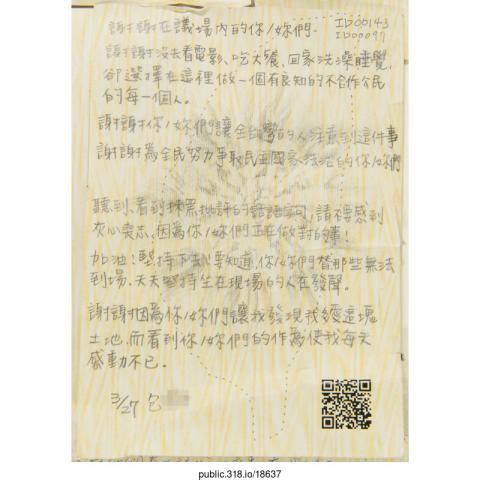 謝謝在議場內的你/妳們.
ID00143
ID00097
謝謝沒去看電影、吃大餐、回家洗澡睡覺
卻選擇在這裡做一個有良知的不合作公民
的每一個人。
謝謝你/妳們讓全台灣的人注意到這件事
謝謝為全民努力爭取民主國家法治的你/妳們
聽到、看到抹黑批評的話語字句,請不要感到
灰心喪志、因為你/妳們正在做對的事!
加油!堅持下去!要知道,你/妳們替那些無法
到場、天天堅持坐在現場的人在發聲。
謝謝因為你/妳們讓我發現我愛這塊
土地.而看到你/妳們的作為使我每天
感動不已。
3/27
public.318.io/18637